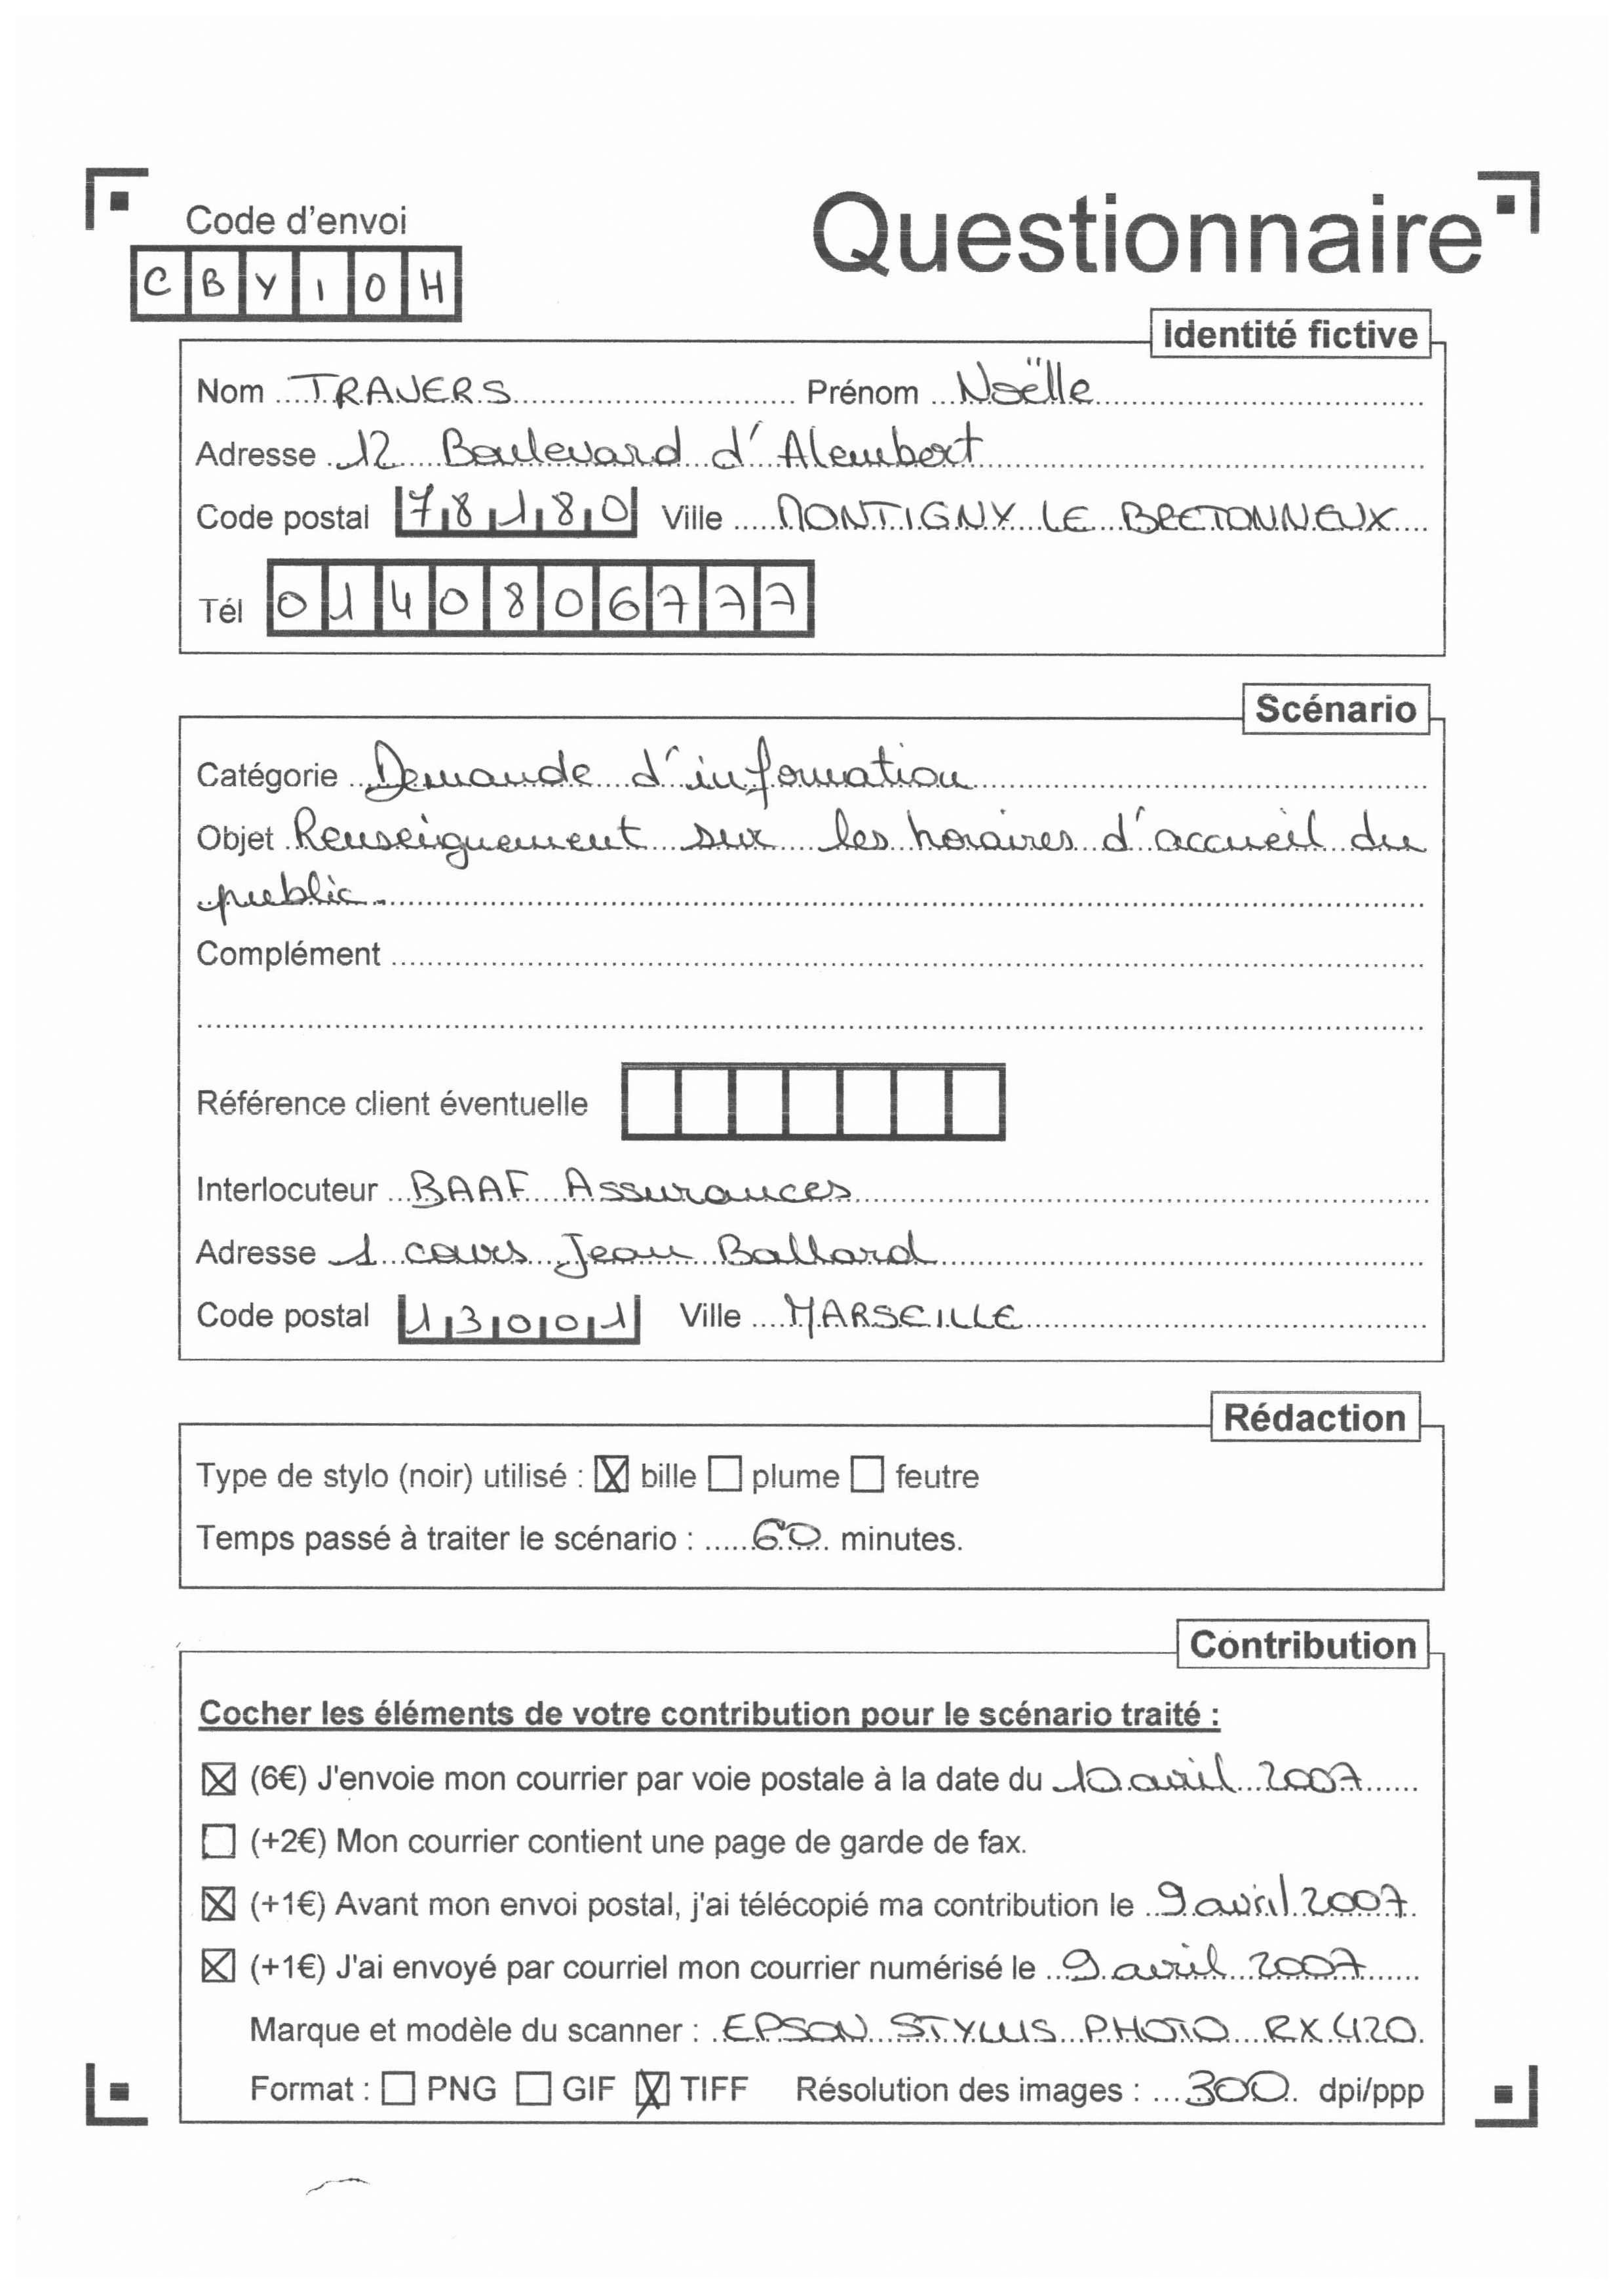 Code d'envoi
CBY10H
Questionnaire
Identité fictive
Nom TRAVERS Prénom Noëlle
Adresse 12 Boulevard d'Alembert
Code postal 78180 Ville MONTIGNY LE BRETONNEUX
Tél 0140806777
Scénario
Catégorie Demande d'information
Objet Renseignement sur les horaires d'accueil du
public.
Complément
Référence client éventuelle
Interlocuteur BAAF Assurances
Adresse 1 cours Jean Ballard
Code postal 13001 Ville MARSEILLE
Rédaction
Type de stylo (noir) utilisé : ☒ bille ☐ plume ☐ feutre
Temps passé à traiter le scénario : 60 minutes.
Contribution
Cocher les éléments de votre contribution pour le scénario traité :
☒ (6€) J'envoie mon courrier par voie postale à la date du 10 avril 2007
☐ (+2€) Mon courrier contient une page de garde de fax.
☒ (+1€) Avant mon envoi postal, j'ai télécopié ma contribution le 9 avril 2007
☒ (+1€) J'ai envoyé par courriel mon courrier numérisé le 9 avril 2007
Marque et modèle du scanner : EPSON STYLUS PHOTO RX 420
Format : ☐ PNG ☐ GIF ☒ TIFF Résolution des images : 300 dpi/ppp